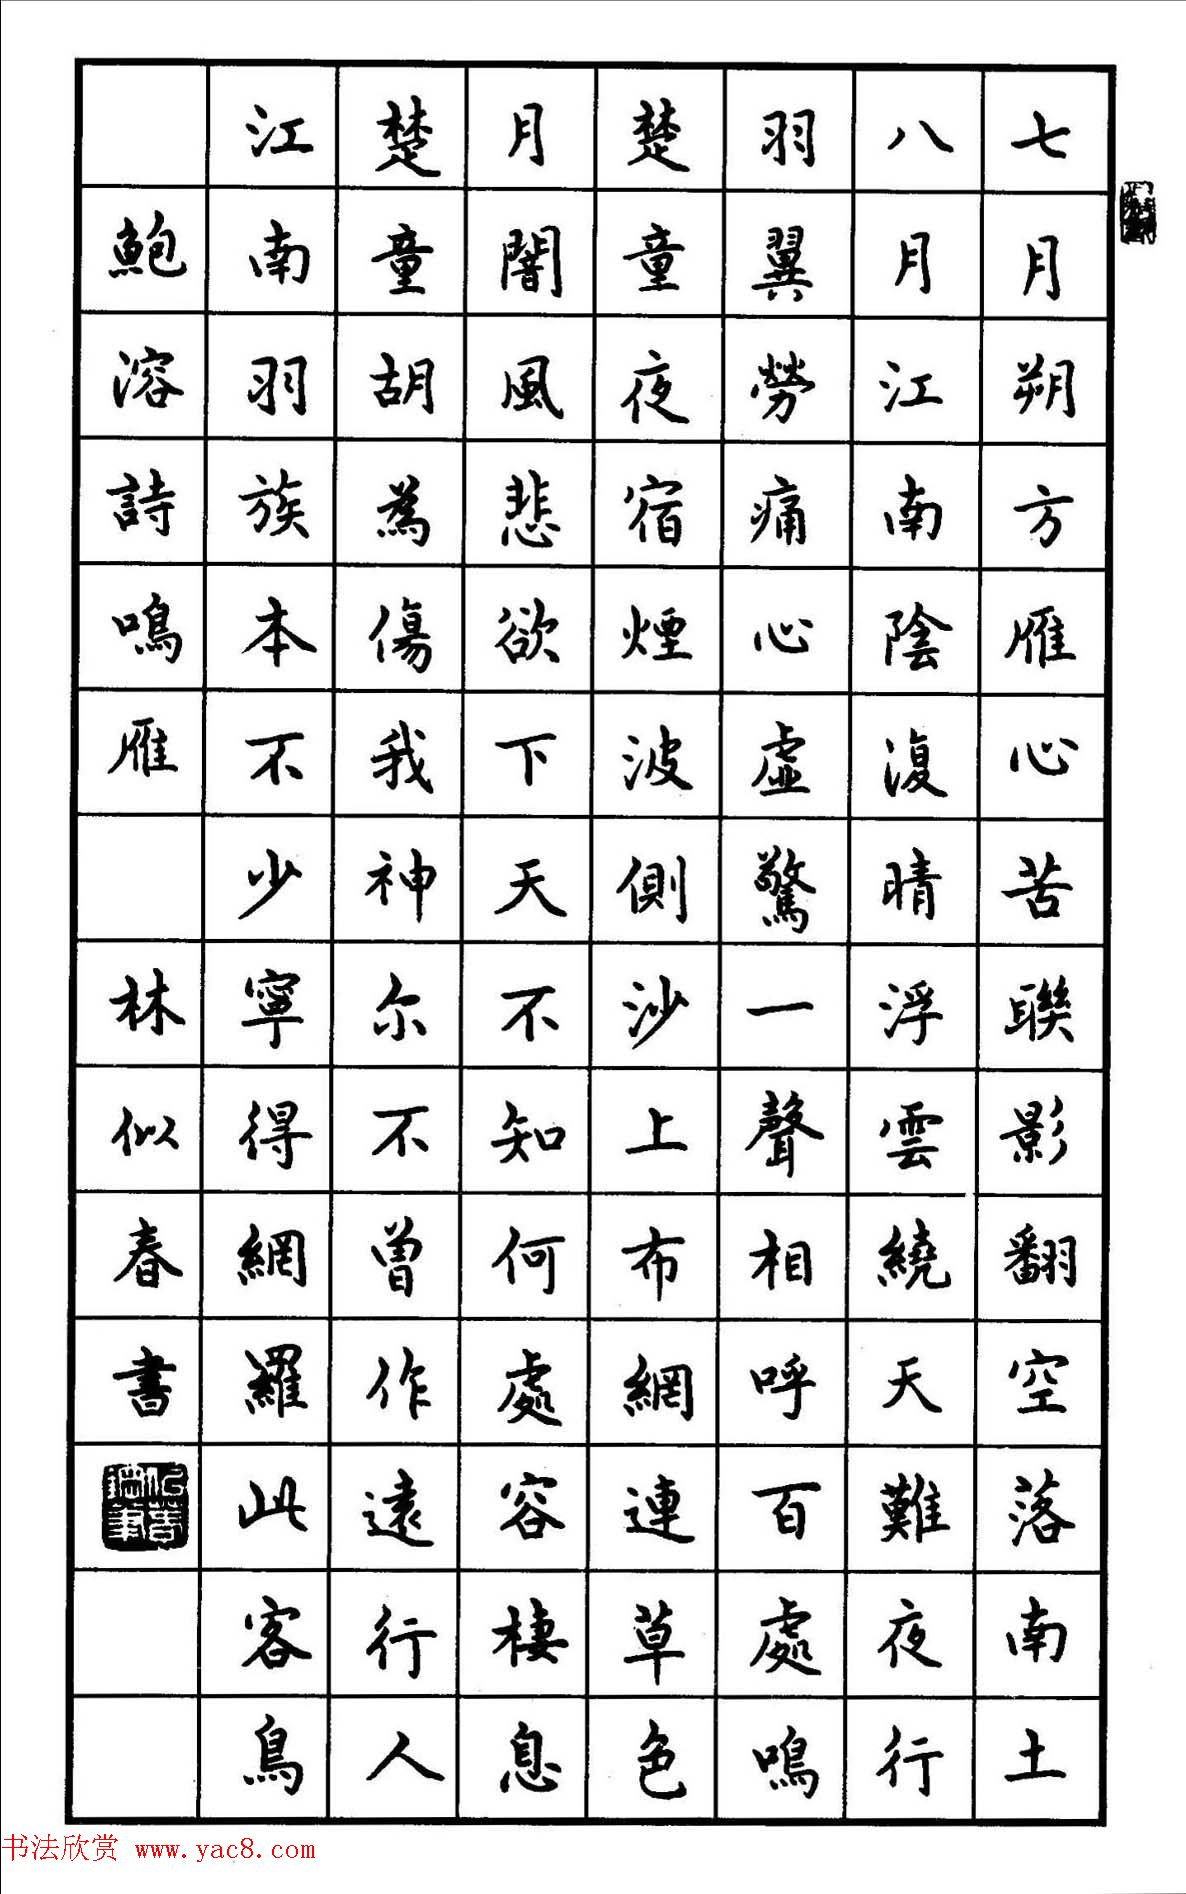 七月朔方雁心苦聯影翻空落南土
八月江南陰復晴浮雲繞天難夜行
羽翼勞痛心虛驚一聲相呼百處鳴
楚童夜宿煙波側沙上布網連草色
月闇風悲欲下天不知何處容棲息
楚童胡為傷我神尔不曾作遠行人
江南羽族本不少寧得網羅此客鳥
鮑溶詩鳴雁 林似春書
书法欣赏 www.yac8.com